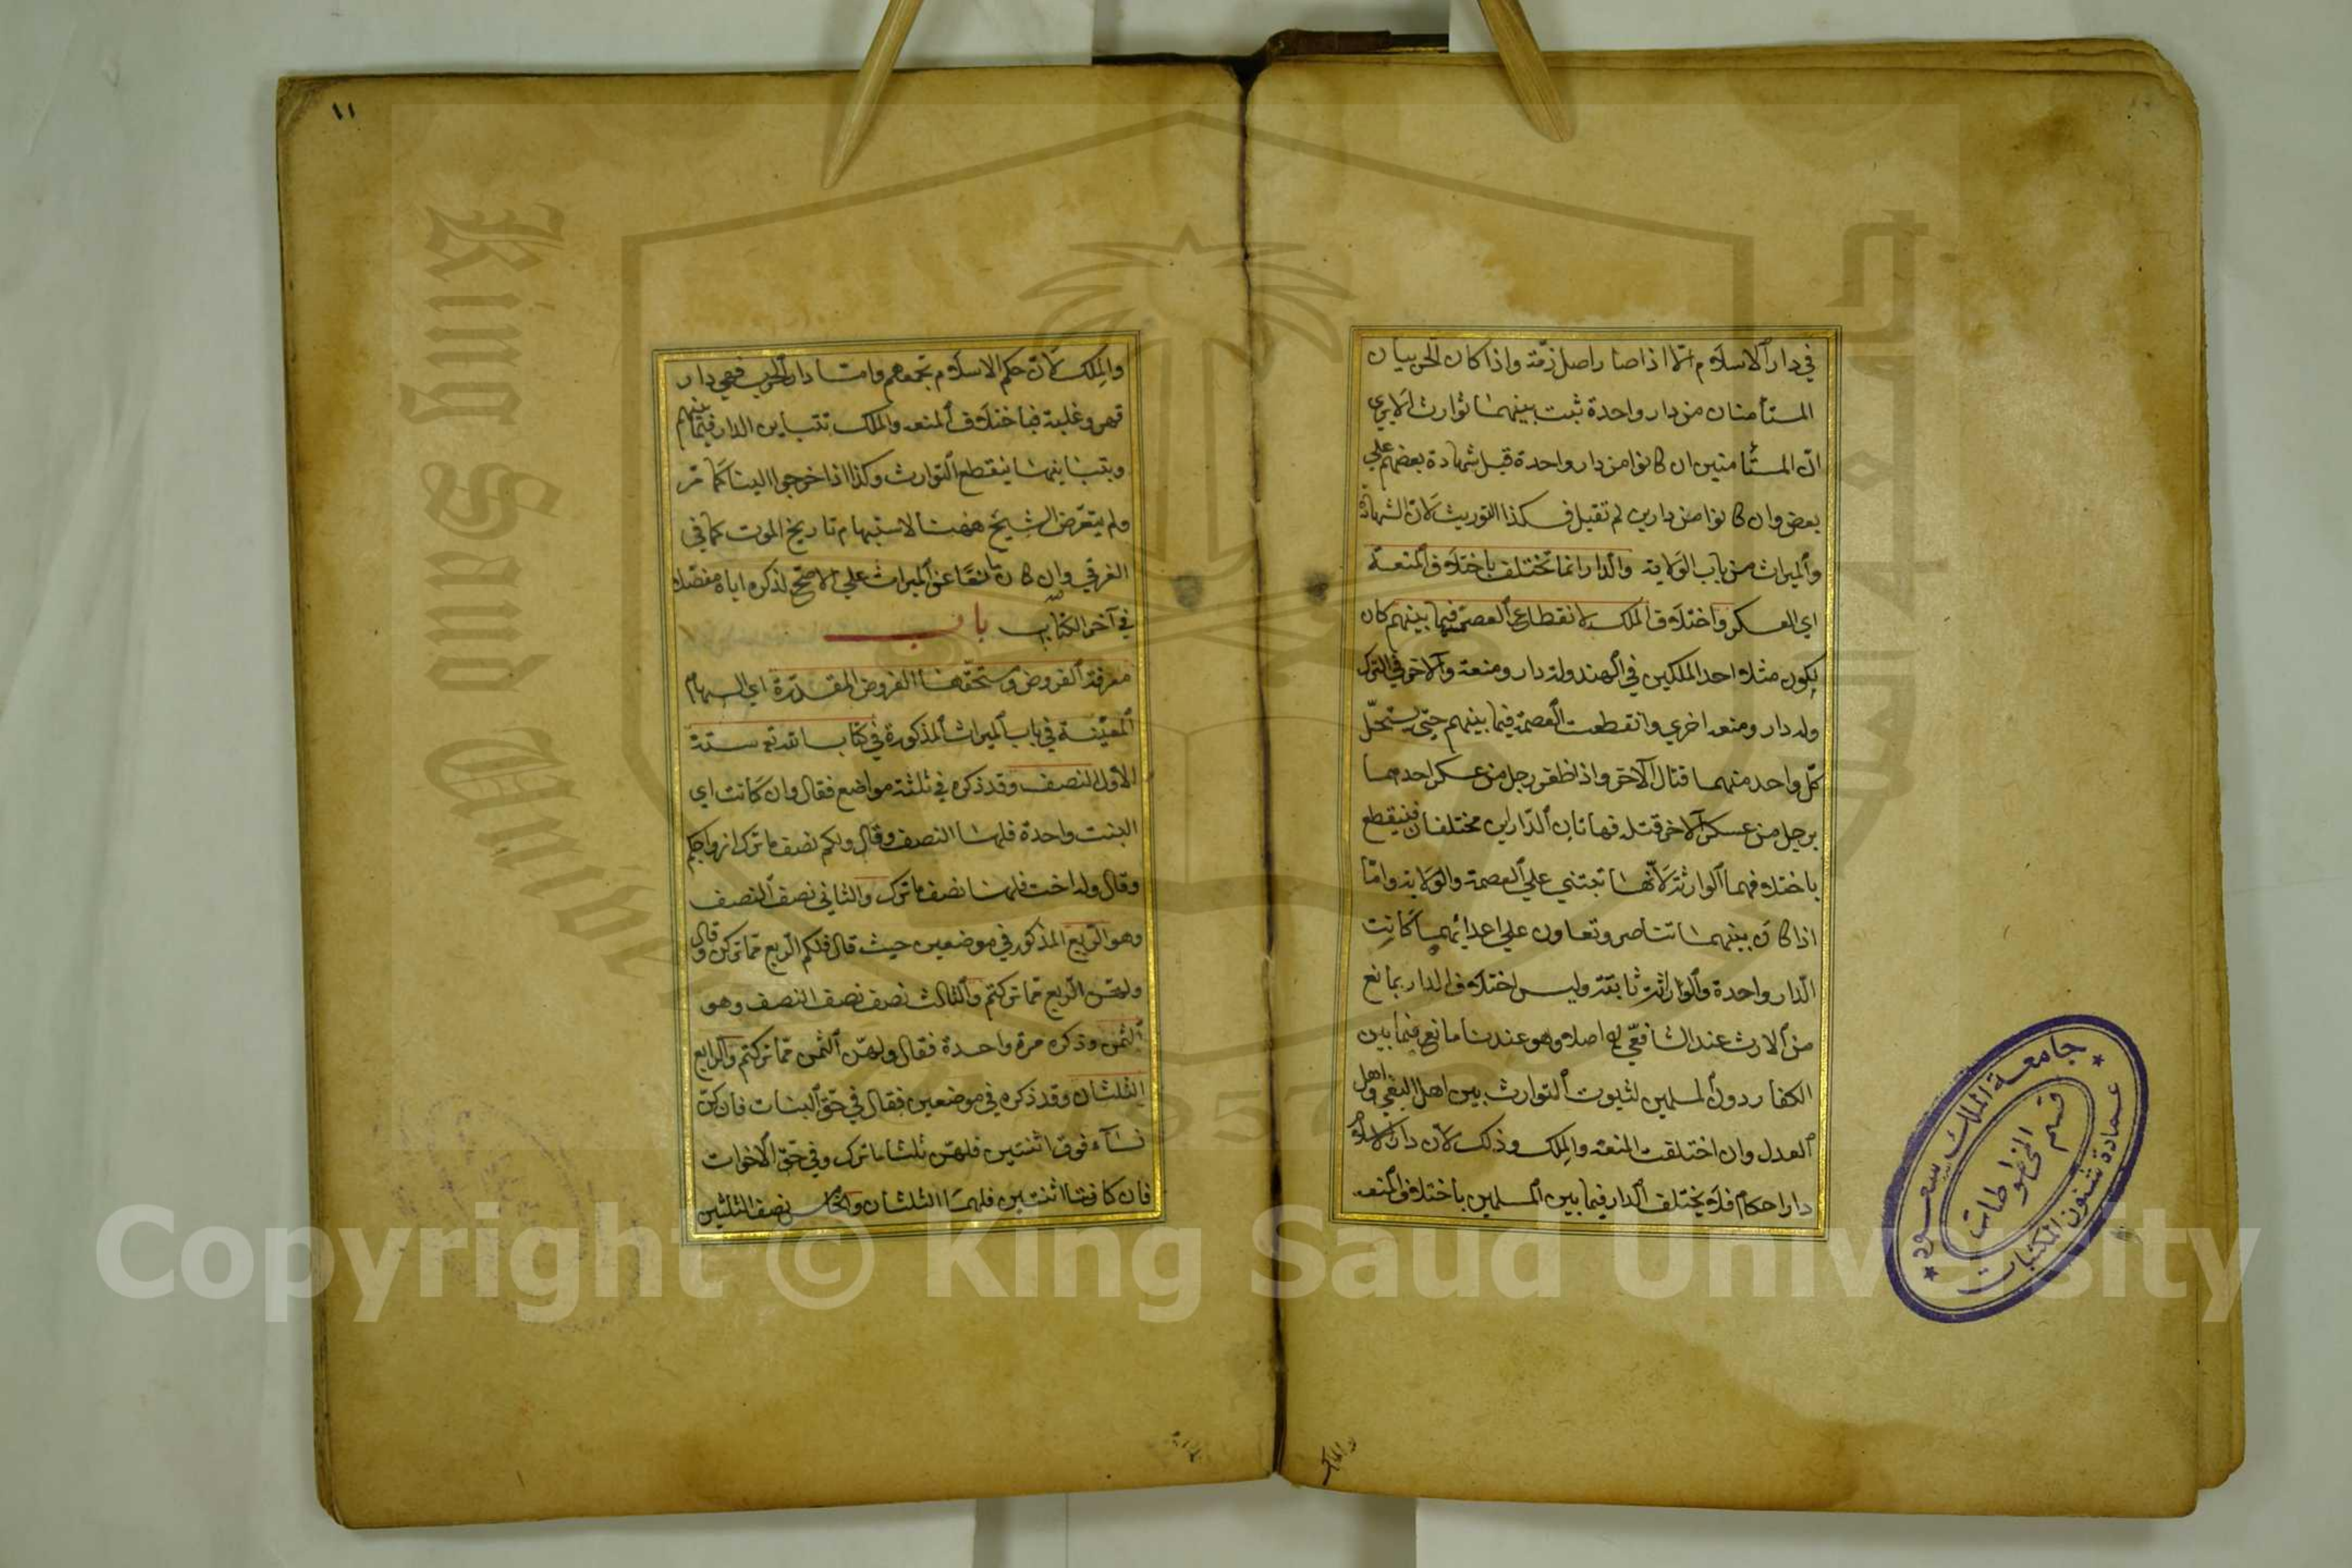 في دار الاسلام الا اذا صارا اهل ذمة واذا كان الحربيان
المستأمنان من دار واحدة ثبت بينهما توارث الا يري
انّ المستأمنين ان كانوا من دار واحدة قبل شهادة بعضهم علي
بعض وان كانوا من دارين لم تقبل فكذا التوريث لانّ الشهادة
والميراث من باب الولاية والدار انما تختلف باختلاف المنعة
اي العسكر واختلاف الملك لانقطاع العصمة فيما بينهم كان
يكون مثلا احد الملكين في الهند وله دار ومنعة والاخر في الترك
وله دار ومنعة اخري وانقطعت العصمة فيما بينهم حتي يستحلّ
كلّ واحد منهما قتال الآخر واذا ظفر رجل من عسكر احدهما
برجل من عسكر الآخر قتله فهاتان الدّاران مختلفتان فينقطع
باختلافهما الوارثة لانّها تبتني علي العصمة والولاية وامّا
اذا كان بينهما تناصر وتعاون علي اعدائهما كانت
الدّار واحدة والوارثة ثابتة وليس اختلاف الدار بمانع
من الارث عند الشافعّي له اصلا وهو عندنا مانع فيما بين
الكفار دون المسلمين لثبوت التوارث بين اهل البغي واهل
العدل وان اختلفت المنعة والملك وذلك لانّ دار الاسلام
دار احكام فلا يختلف الدار فيما بين المسلمين باختلاف المنعة
والملك
١١
والملك لانّ حكم الاسلام يجمعهم وامّا دار الحرب فهي دار
قهر وغلبة فباختلاف المنعة والملك تتباين الدار فيما بينهم
وبتباينها ينقطع التوارث وكذا اذا خرجوا الينا كما مرّ
ولم يتعرّض الشيخ ههنا لاستبهام تاريخ الموت كما في
الغرقي وان كان مانعًا عن الميراث علي الاصّح لذكره اياه مفصّلا
في آخر الكتاب باب
معرفة الفروض ومستحقّها الفروض المقدّرة اي السهام
المعيّنة في باب الميراث المذكورة في كتاب الله تع ستة
الاول النصف وقد ذكره في ثلثة مواضع فقال وان كانت اي
البنت واحدة فلها النصف وقال ولكم نصف ما ترك ازواجكم
وقال وله اخت فلها نصف ما ترك والثاني نصف النصف
وهو الرّبع المذكور في موضعين حيث قال فلكم الرّبع ممّا تركن وقال
ولهنّ الرّبع ممّا تركتم والثالث نصف نصف النصف وهو
الثمن وذكره مرة واحدة فقال ولهنّ الثمن ممّا تركتم والرابع
الثلثان وقد ذكره في موضعين فقال في حقّ البنات فان كنّ
نسآء فوق اثنتين فلهنّ ثلثا ما ترك وفي حقّ الاخوات
فان كانتا اثنتين فلهما الثلثان والخامس نصف الثلثين
جامعة الملك سعود
قسم المخطوطات
عمادة شئون المكتبات
King Saud Unive
957
Copyright © King Saud University